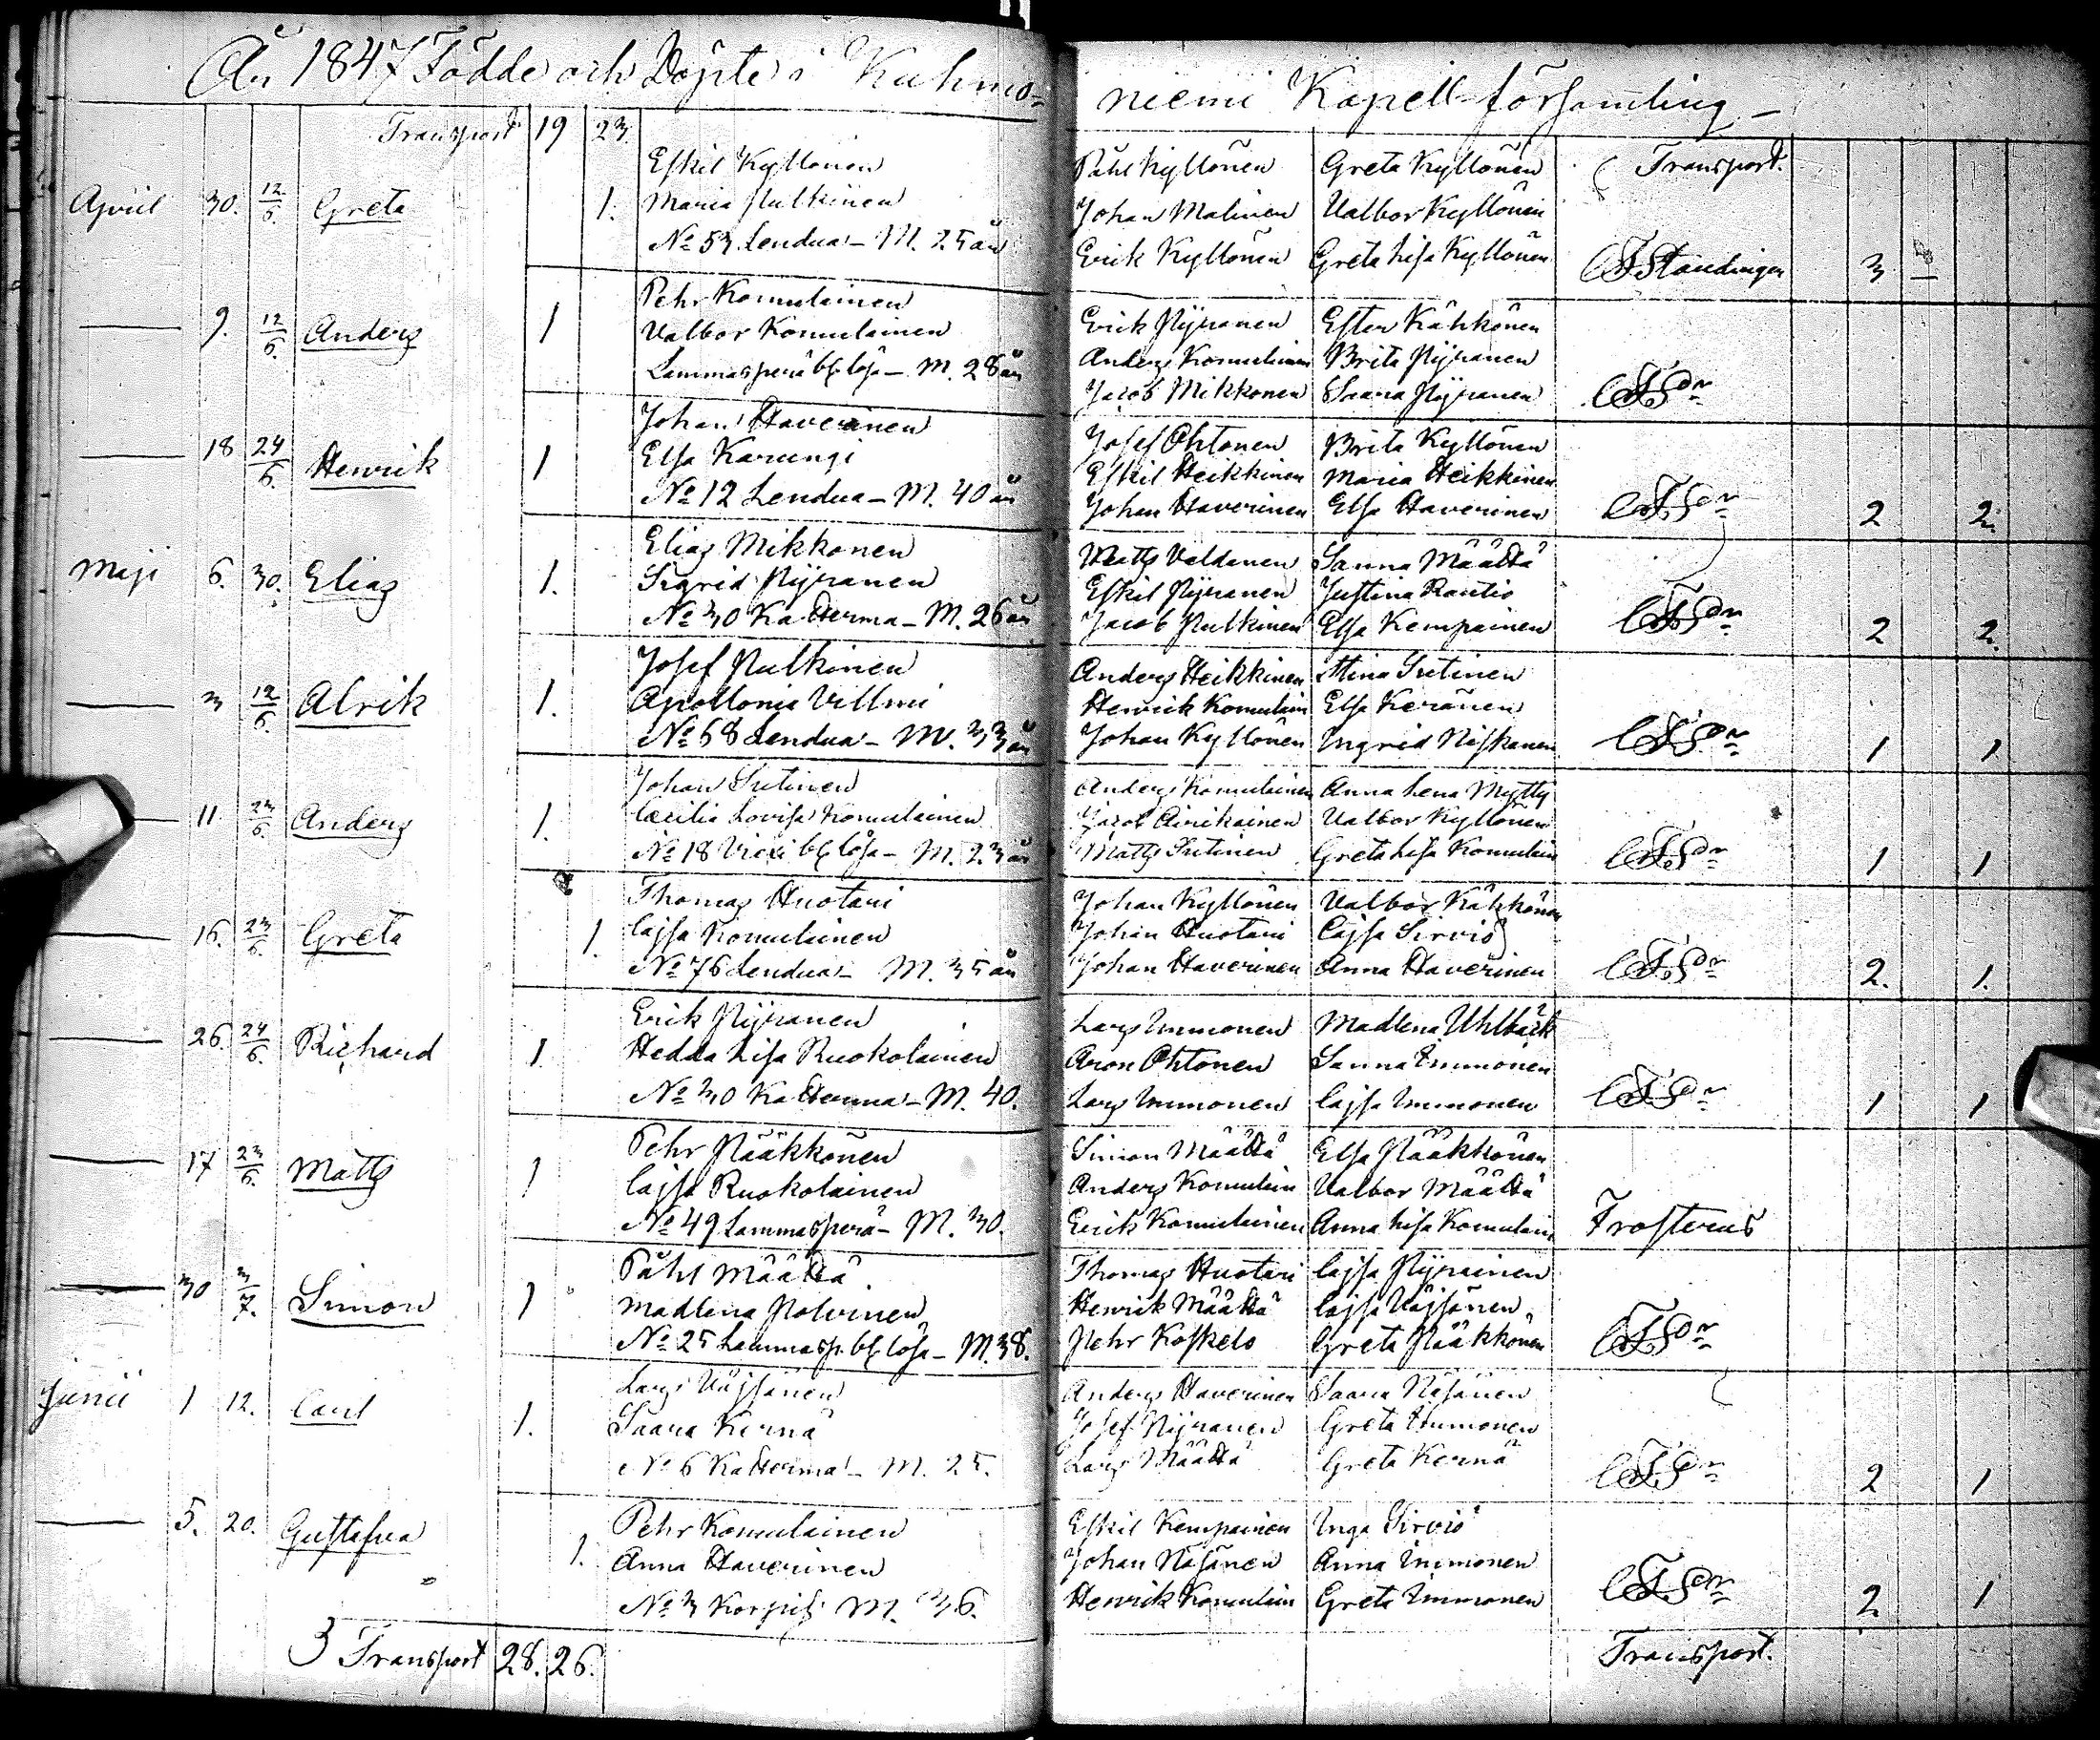 År 1847 Födde och Döpte i Kuhmo-
niemi Kapell-församling
Transport 19 23.
Eskil Kyllönen Påhl Kyllönen Greta Kyllönen Transport.
April 30. 12/6. Greta 1. Maria Pulkinen Johan Malinen Valbor Kyllönen
No 53 Lendua - M. 25 år Erik Kyllönen Greta Lisa Kyllönen 3
Pehr Komulainen Erik Pijranen Ester Kähkönen
9. 12/6. Anders 1 Valbor Komulainen Anders Komulainen Brita Pijranen
Lammasperä - M. 28 år Jacob Mikkonen Saara Pijranen
Johan Haverinen Josef Ohtonen Brita Kyllönen
18 24/6. Henrik 1 Elsa Karungi Eskil Heikkinen Maria Heikkinen
No 12 Lendua - M. 40 år Johan Haverinen Elsa Haverinen 2 2.
Elias Mikkonen Matts Valdanen Sanna Määttä
Maji 6. 30. Elias 1. Sigrid Pijranen Eskil Pijranen Justina Rautio
No 30 Katterma - M. 26 år Jacob Pulkinen Elsa Kempainen 2 2.
Josef Pulkinen Anders Heikkinen Stina Sutinen
3 12/6. Alrik 1. Apollonia Henrik Komulain Elsa Keränen
No 68 Lendua - M. 33 år Johan Kyllönen Ingrid Niskanen 1 1
Johan Sutinen Anders Komulainen Anna Lena Mytty
11. 23/6. Anders 1. Cæcilia Lovisa Komulainen Jacob Airikainen Valbor Kyllönen
No 18 - M. 23 år Matts Sutinen Greta Lisa Komulain 1 1
Thomas Huotari Johan Kyllönen Valbor Kähkönen
16. 23/6. Greta 1. Cajsa Komulainen Johan Huotari Cajsa Sirviö
No 76 Lendua - M. 35 år Johan Haverinen Anna Haverinen 2. 1.
Erik Pijranen Lars Immonen Madlena Uhlbäck
26. 24/6. Richard 1. Hedda Lisa Ruokolainen Aron Ohtonen Sanna Immonen
No 30 Katterma - M. 40. Lars Immonen Cajsa Immonen 1 1
Pehr Pääkkönen Simon Määttä Elsa Pääkkönen
17 23/6. Matts 1 Cajsa Ruokolainen Anders Komulain Valbor Määttä
No 49 Lammasperä - M. 30. Erik Komulainen Anna Lisa Komulain Frosterus
Påhl Määttä Thomas Huotari Cajsa Pijrainen
30 3/7. Simon 1 Madlena Polvinen Henrik Määttä Cajsa Väjsänen
No 25 Lammasp. - M. 38. Pehr Koskelo Greta Pääkkönen
Lars Väjsänen Anders Haverinen Saara Näsänen
Junii 1 12. Carl 1. Saara Kernä Josef Pijranen Greta Immonen
No 6 Katterma - M. 25. Lars Määttä Greta Kernä 2 1
Pehr Komulainen Eskil Kempainen Inga Sirviö
5. 20. Gustafva 1. Anna Haverinen Johan Näsänen Anna Immonen
No 3 M. 36. Henrik Komulain Greta Immonen 2. 1
3 Transport 28. 26. Transport.